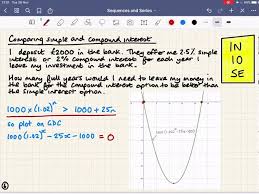 Sequences and Series
Comparing simple and compound interest
I deposit £2000 in the bank. They offer me 2.5% simple
interest or 2% compound interest for each year I
leave my investment in the bank.
How many full years would I need to leave my money in
the bank for the compound interest option to be better than
the simple interest option.
1000 × (1.02)ⁿ > 1000 + 25n
so plot on GDC
1000 (1.02)ˣ - 25x - 1000 = 0
IN
10
SE